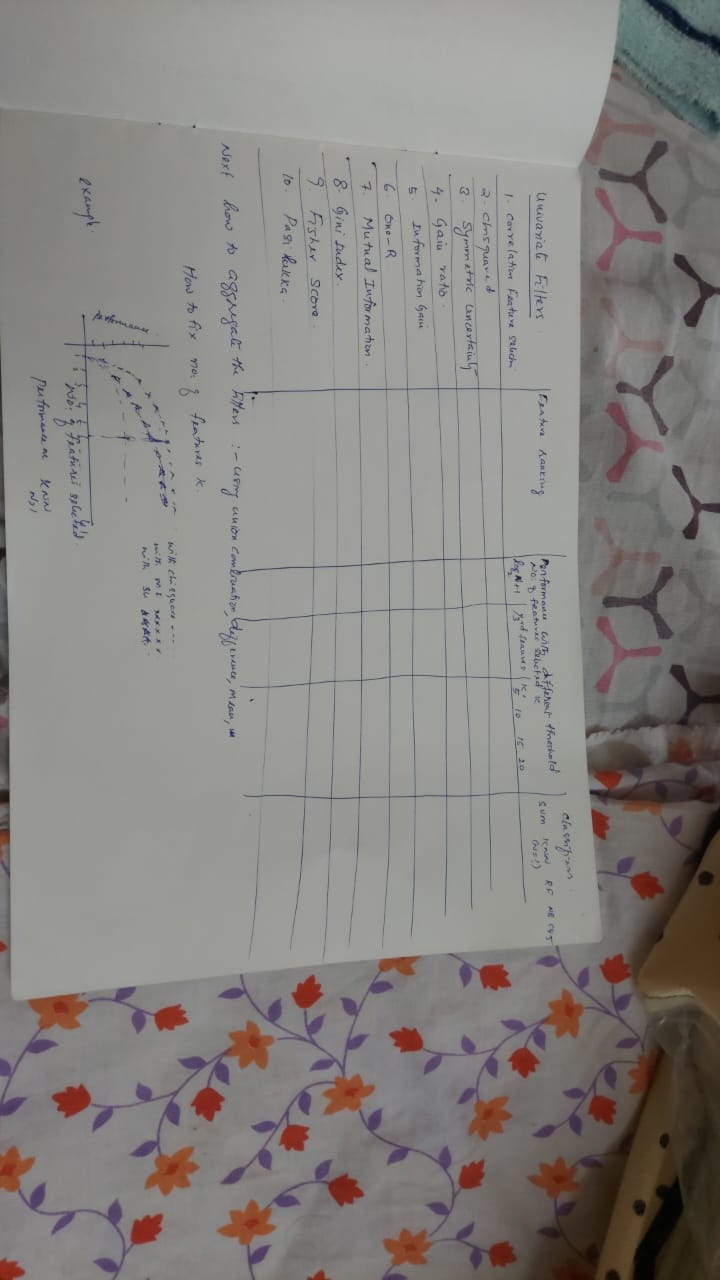 Classifiers
Univariate Filters
Feature ranking
Performance with different threshold
No: of features selected k
SVM KNN RF NB C4.5
(N=1)
log2N+1
rd features
K=
5 10 15 20
1. Correlation Feature Selectn
2. Chisquared
3. Symmetric Uncertainty
4. Gain ratio.
5. Information Gain
6. One-R
7. Mutual Information.
8. Gini Index.
9. Fisher Score.
10.
Next how to aggregate the Filters :- using union combination, difference, mean,
How to fix no: of features k.
with chisquare ----
with MI xxxxx
with SU
Performance
example.
1 2 3 4 5
No: of features selected.
Performance KNN
N=1